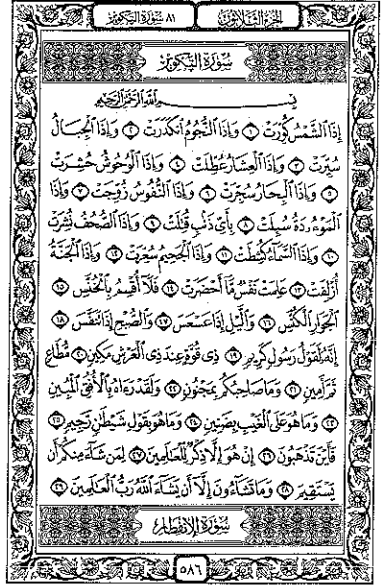 ٨١ سورة التكوير الجزء الثلاثون
سُورَةُ التَّكْوِيرِ
بِسْمِ اللَّهِ الرَّحْمَٰنِ الرَّحِيمِ
إِذَا الشَّمْسُ كُوِّرَتْ ١ وَإِذَا النُّجُومُ انكَدَرَتْ ٢ وَإِذَا الْجِبَالُ
سُيِّرَتْ ٣ وَإِذَا الْعِشَارُ عُطِّلَتْ ٤ وَإِذَا الْوُحُوشُ حُشِرَتْ
٥ وَإِذَا الْبِحَارُ سُجِّرَتْ ٦ وَإِذَا النُّفُوسُ زُوِّجَتْ ٧ وَإِذَا
الْمَوْءُودَةُ سُئِلَتْ ٨ بِأَيِّ ذَنبٍ قُتِلَتْ ٩ وَإِذَا الصُّحُفُ نُشِرَتْ
١٠ وَإِذَا السَّمَاءُ كُشِطَتْ ١١ وَإِذَا الْجَحِيمُ سُعِّرَتْ ١٢ وَإِذَا الْجَنَّةُ
أُزْلِفَتْ ١٣ عَلِمَتْ نَفْسٌ مَّا أَحْضَرَتْ ١٤ فَلَا أُقْسِمُ بِالْخُنَّسِ ١٥
الْجَوَارِ الْكُنَّسِ ١٦ وَاللَّيْلِ إِذَا عَسْعَسَ ١٧ وَالصُّبْحِ إِذَا تَنَفَّسَ ١٨
إِنَّهُ لَقَوْلُ رَسُولٍ كَرِيمٍ ١٩ ذِي قُوَّةٍ عِندَ ذِي الْعَرْشِ مَكِينٍ ٢٠ مُّطَاعٍ
ثَمَّ أَمِينٍ ٢١ وَمَا صَاحِبُكُم بِمَجْنُونٍ ٢٢ وَلَقَدْ رَآهُ بِالْأُفُقِ الْمُبِينِ
٢٣ وَمَا هُوَ عَلَى الْغَيْبِ بِضَنِينٍ ٢٤ وَمَا هُوَ بِقَوْلِ شَيْطَانٍ رَّجِيمٍ ٢٥
فَأَيْنَ تَذْهَبُونَ ٢٦ إِنْ هُوَ إِلَّا ذِكْرٌ لِّلْعَالَمِينَ ٢٧ لِمَن شَاءَ مِنكُمْ أَن
يَسْتَقِيمَ ٢٨ وَمَا تَشَاءُونَ إِلَّا أَن يَشَاءَ اللَّهُ رَبُّ الْعَالَمِينَ ٢٩
سُورَةُ الِانْفِطَارِ
٥٨٦